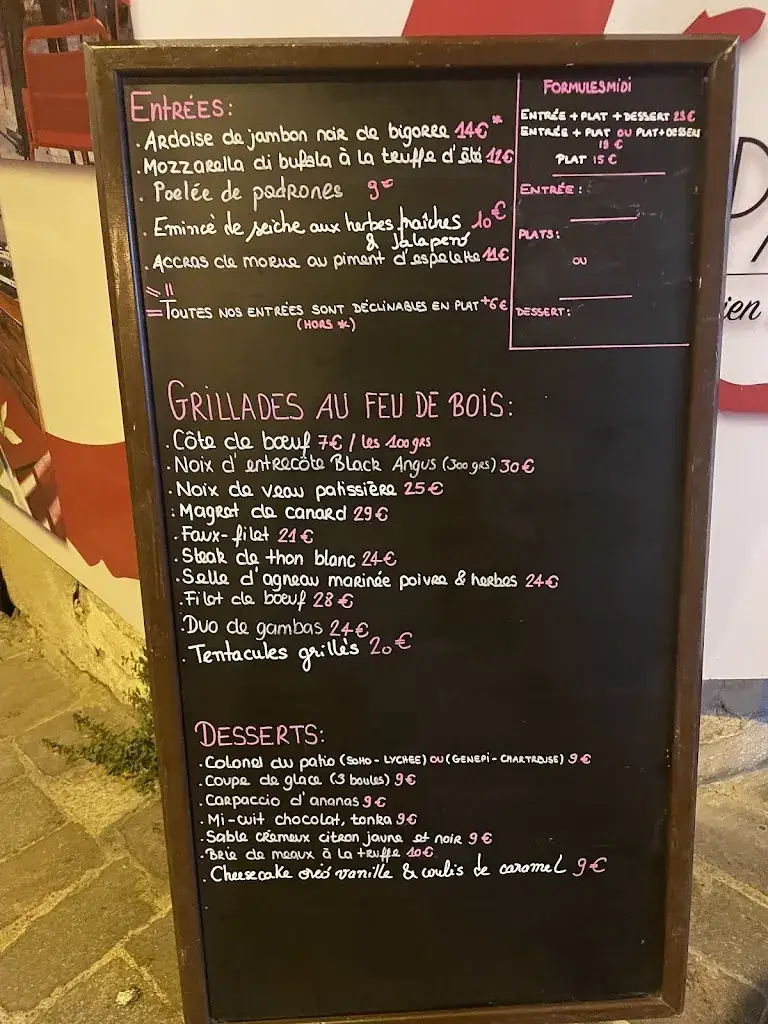 Entrées:
. Ardoise de jambon noir de bigorre 14€*
. Mozzarella di bufala à la truffe d'été 12€
. Poelée de padrones 9€
. Emincé de seiche aux herbes fraîches 10€
& Jalapeno
. Accras de morue au piment d'espelette 11€
Toutes nos entrées sont déclinables en plat +6€
(hors *)
Formules midi
Entrée + plat + dessert 23€
Entrée + plat ou plat + dessert
19 €
Plat 15 €
Entrée:
Plats:
ou
Dessert:
Grillades au feu de bois:
. Côte de bœuf 7€ / les 100grs
. Noix d'entrecôte Black Angus (300 grs) 30€
. Noix de veau patissière 25€
. Magret de canard 29€
. Faux-filet 21€
. Steak de thon blanc 24€
. Selle d'agneau marinée poivre & herbes 24€
. Filet de bœuf 28€
. Duo de gambas 24€
. Tentacules grillés 20€
Desserts:
. Colonel du patio (Soho - Lychee) ou (Genepi - Chartreuse) 9€
. Coupe de glace (3 boules) 9€
. Carpaccio d'ananas 9€
. Mi-cuit chocolat, tonka 9€
. Sable crémeux citron jaune et noir 9€
. Brie de meaux à la truffe 10€
. Cheesecake oréo vanille & coulis de caramel 9€
ien